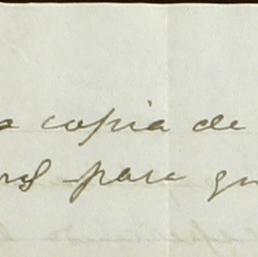 a copia de
para qu